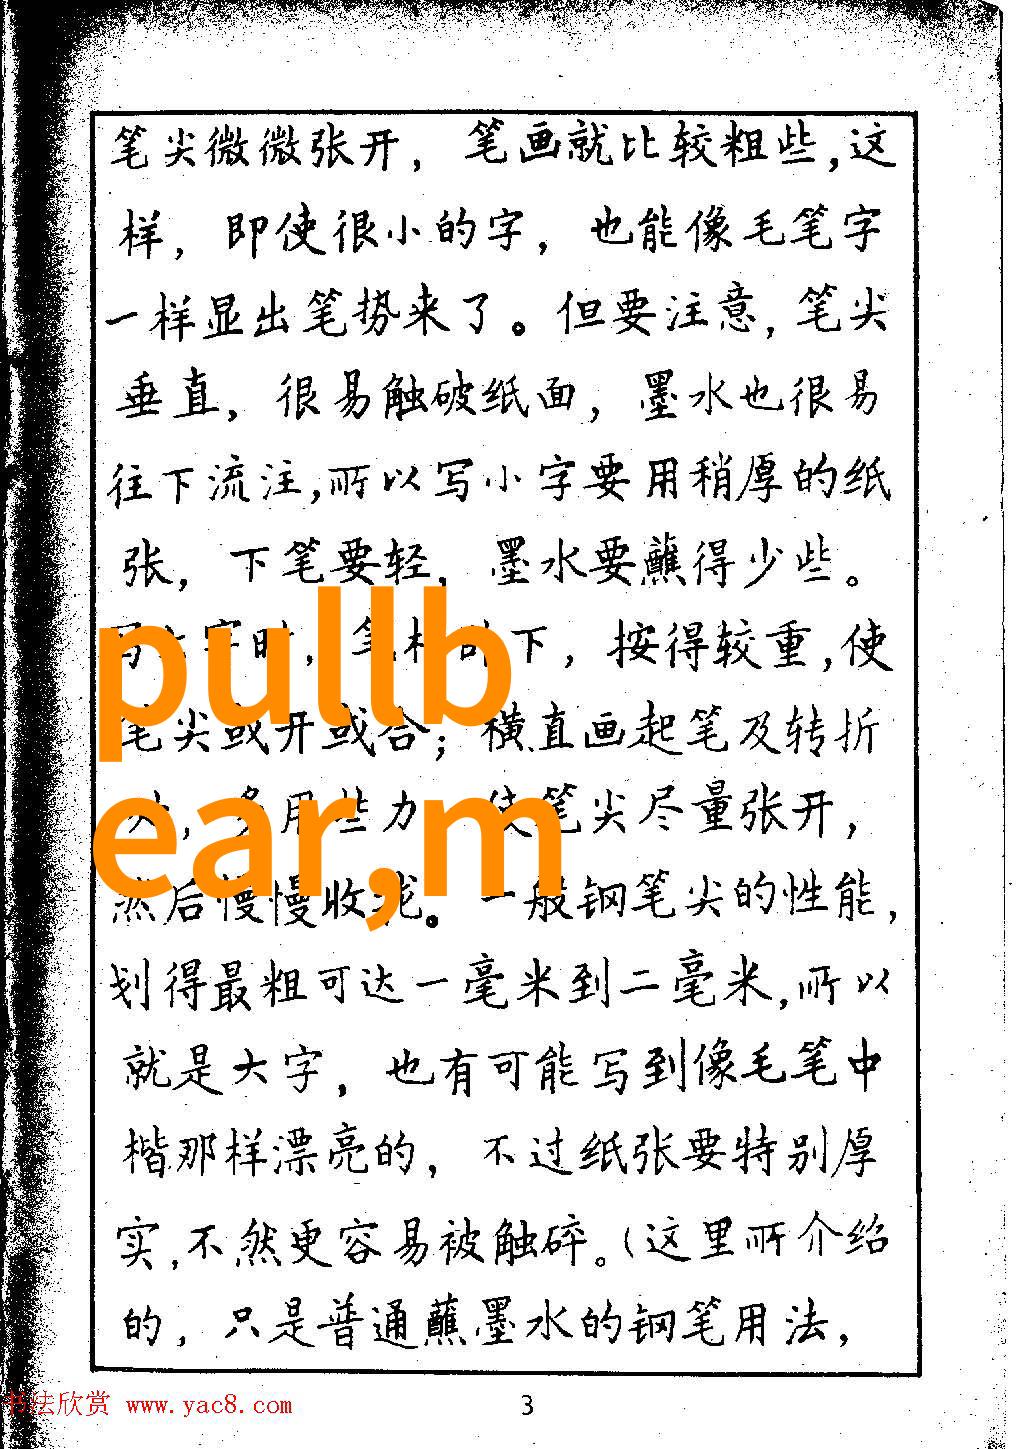 笔尖微微张开，笔画就比较粗些，这
样，即使很小的字，也能像毛笔字
一样显出笔势来了。但要注意，笔尖
垂直，很易触破纸面，墨水也很易
往下流注，所以写小字要用稍厚的纸
张，下笔要轻，墨水要蘸得少些。
写字时，笔下，按得较重，使
笔尖或开或合；横直画起笔及转折
多用些力，使笔尖尽量张开，
然后慢慢收拢。一般钢笔尖的性能，
划得最粗可达一毫米到二毫米，所以
就是大字，也有可能写到像毛笔中
楷那样漂亮的，不过纸张要特别厚
实，不然更容易被触碎。（这里所介绍
的，只是普通蘸墨水的钢笔用法，
pullb
ear,m
书法欣赏 www.yac8.com
3